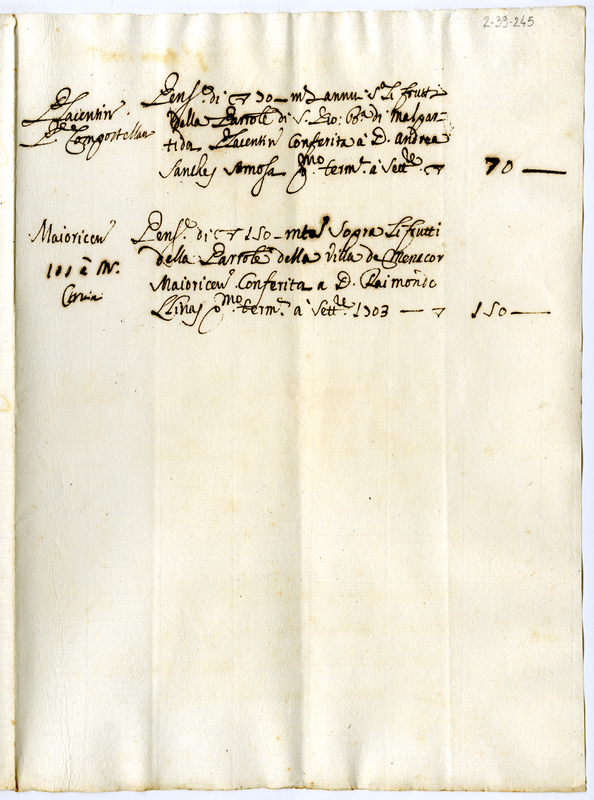 2-39-245
Placentin.
P. Compostellan
Pens.e di ▽ 70 – m.ta annu. S.a li frutti
della Parrole di S. Gio. B.a di Malpar-
tida Placentin Conferita à D. Andrea
Sanches Somosa p.mo term.e a Sett.re ▽ 70 —
Maioricen
Pens.e di ▽ 150 – mta Sopra li frutti
della Parrole della Villa de Menacor
101 à N.
Maioricen. Conferita a D. Raimondo
Llinas p.mo term.e a Sett.re 1703 — ▽ 150 —